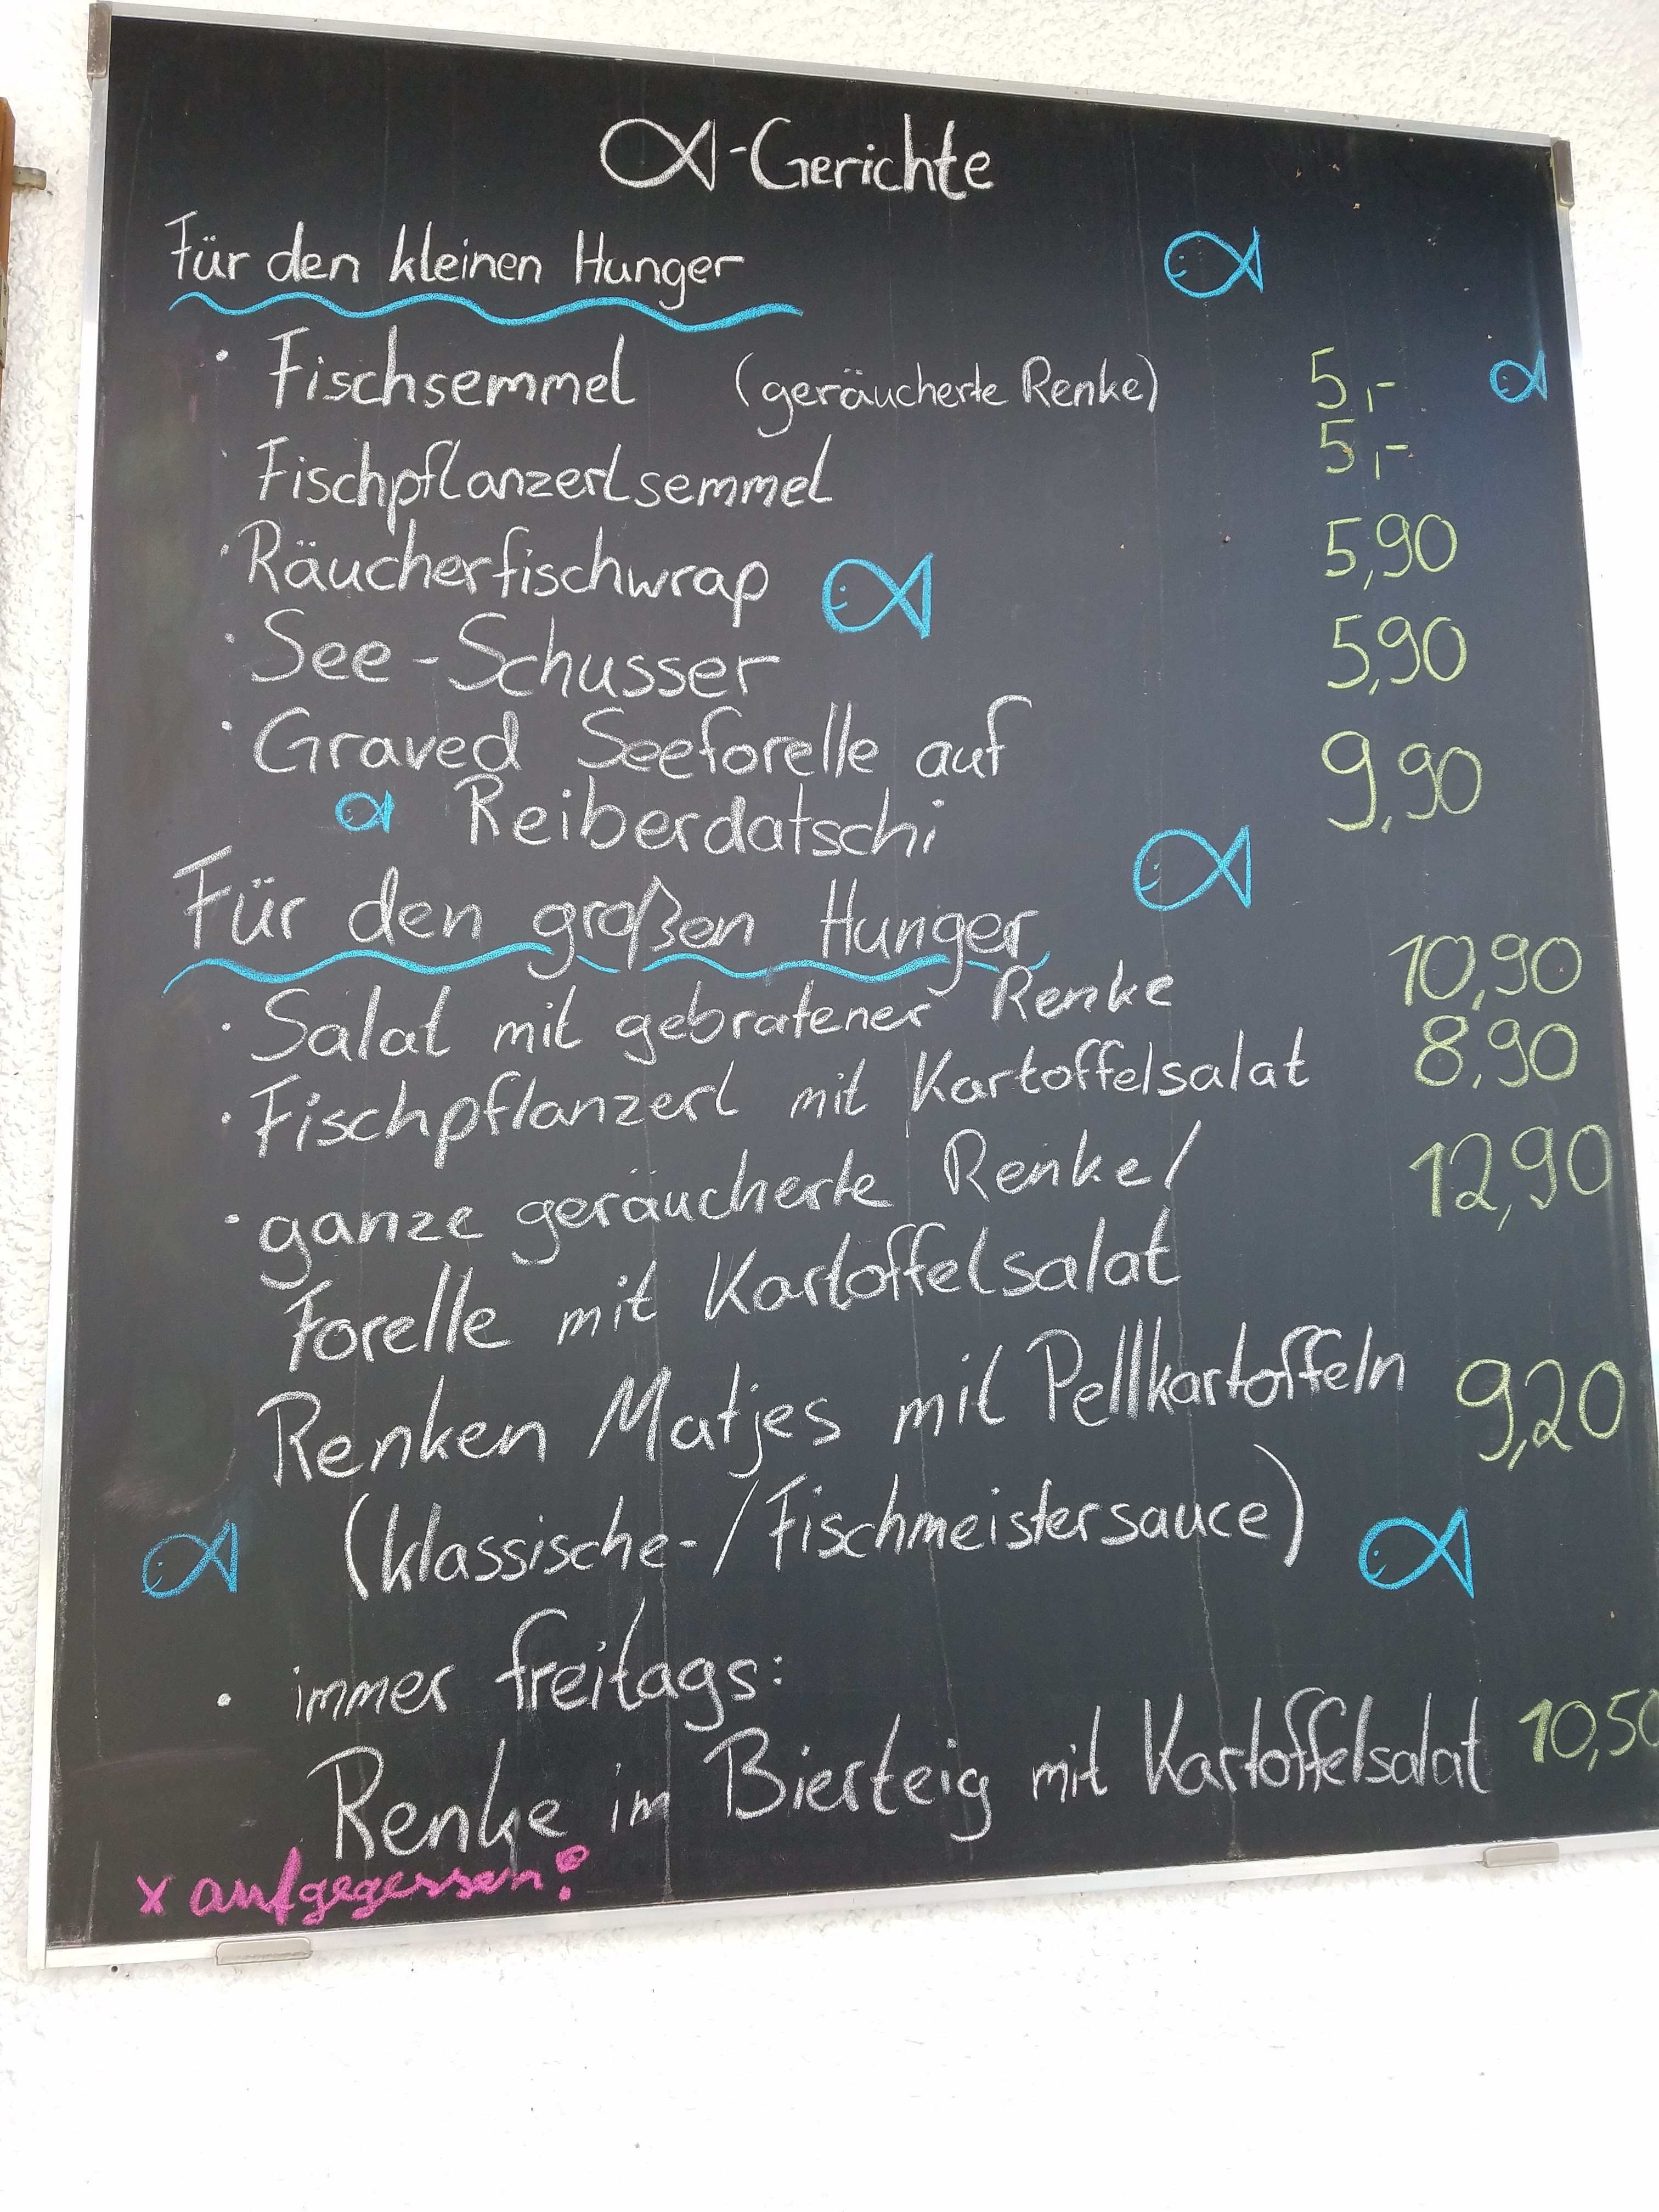 -Gerichte
Für den kleinen Hunger
· Fischsemmel (geräucherte Renke) 5,-
· Fischpflanzerlsemmel 5,-
· Räucherfischwrap 5,90
· See-Schusser 5,90
· Graved Seeforelle auf 9,90
Reiberdatschi
Für den großen Hunger
· Salat mit gebratener Renke 10,90
· Fischpflanzerl mit Kartoffelsalat 8,90
· ganze geräucherte Renke/ 12,90
Forelle mit Kartoffelsalat
Renken Matjes mit Pellkartoffeln 9,20
(klassische-/Fischmeistersauce)
· immer freitags:
Renke im Bierteig mit Kartoffelsalat 10,50
x aufgegessen!